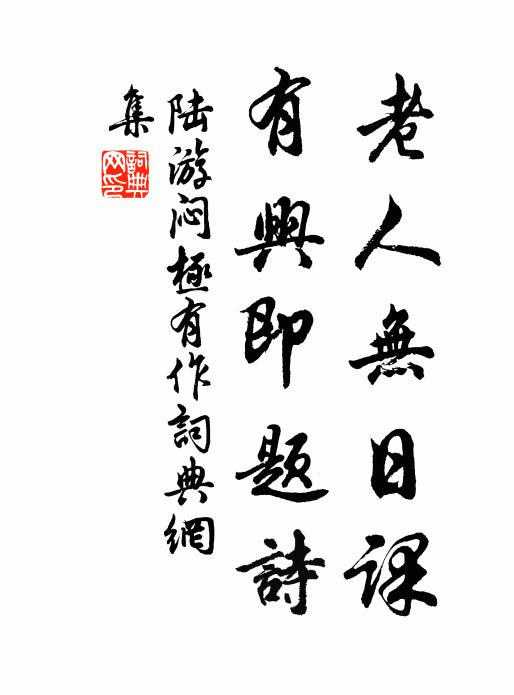 老人無日課
有興即題詩
陆游闷極有作詞典網
集
詞典
网印